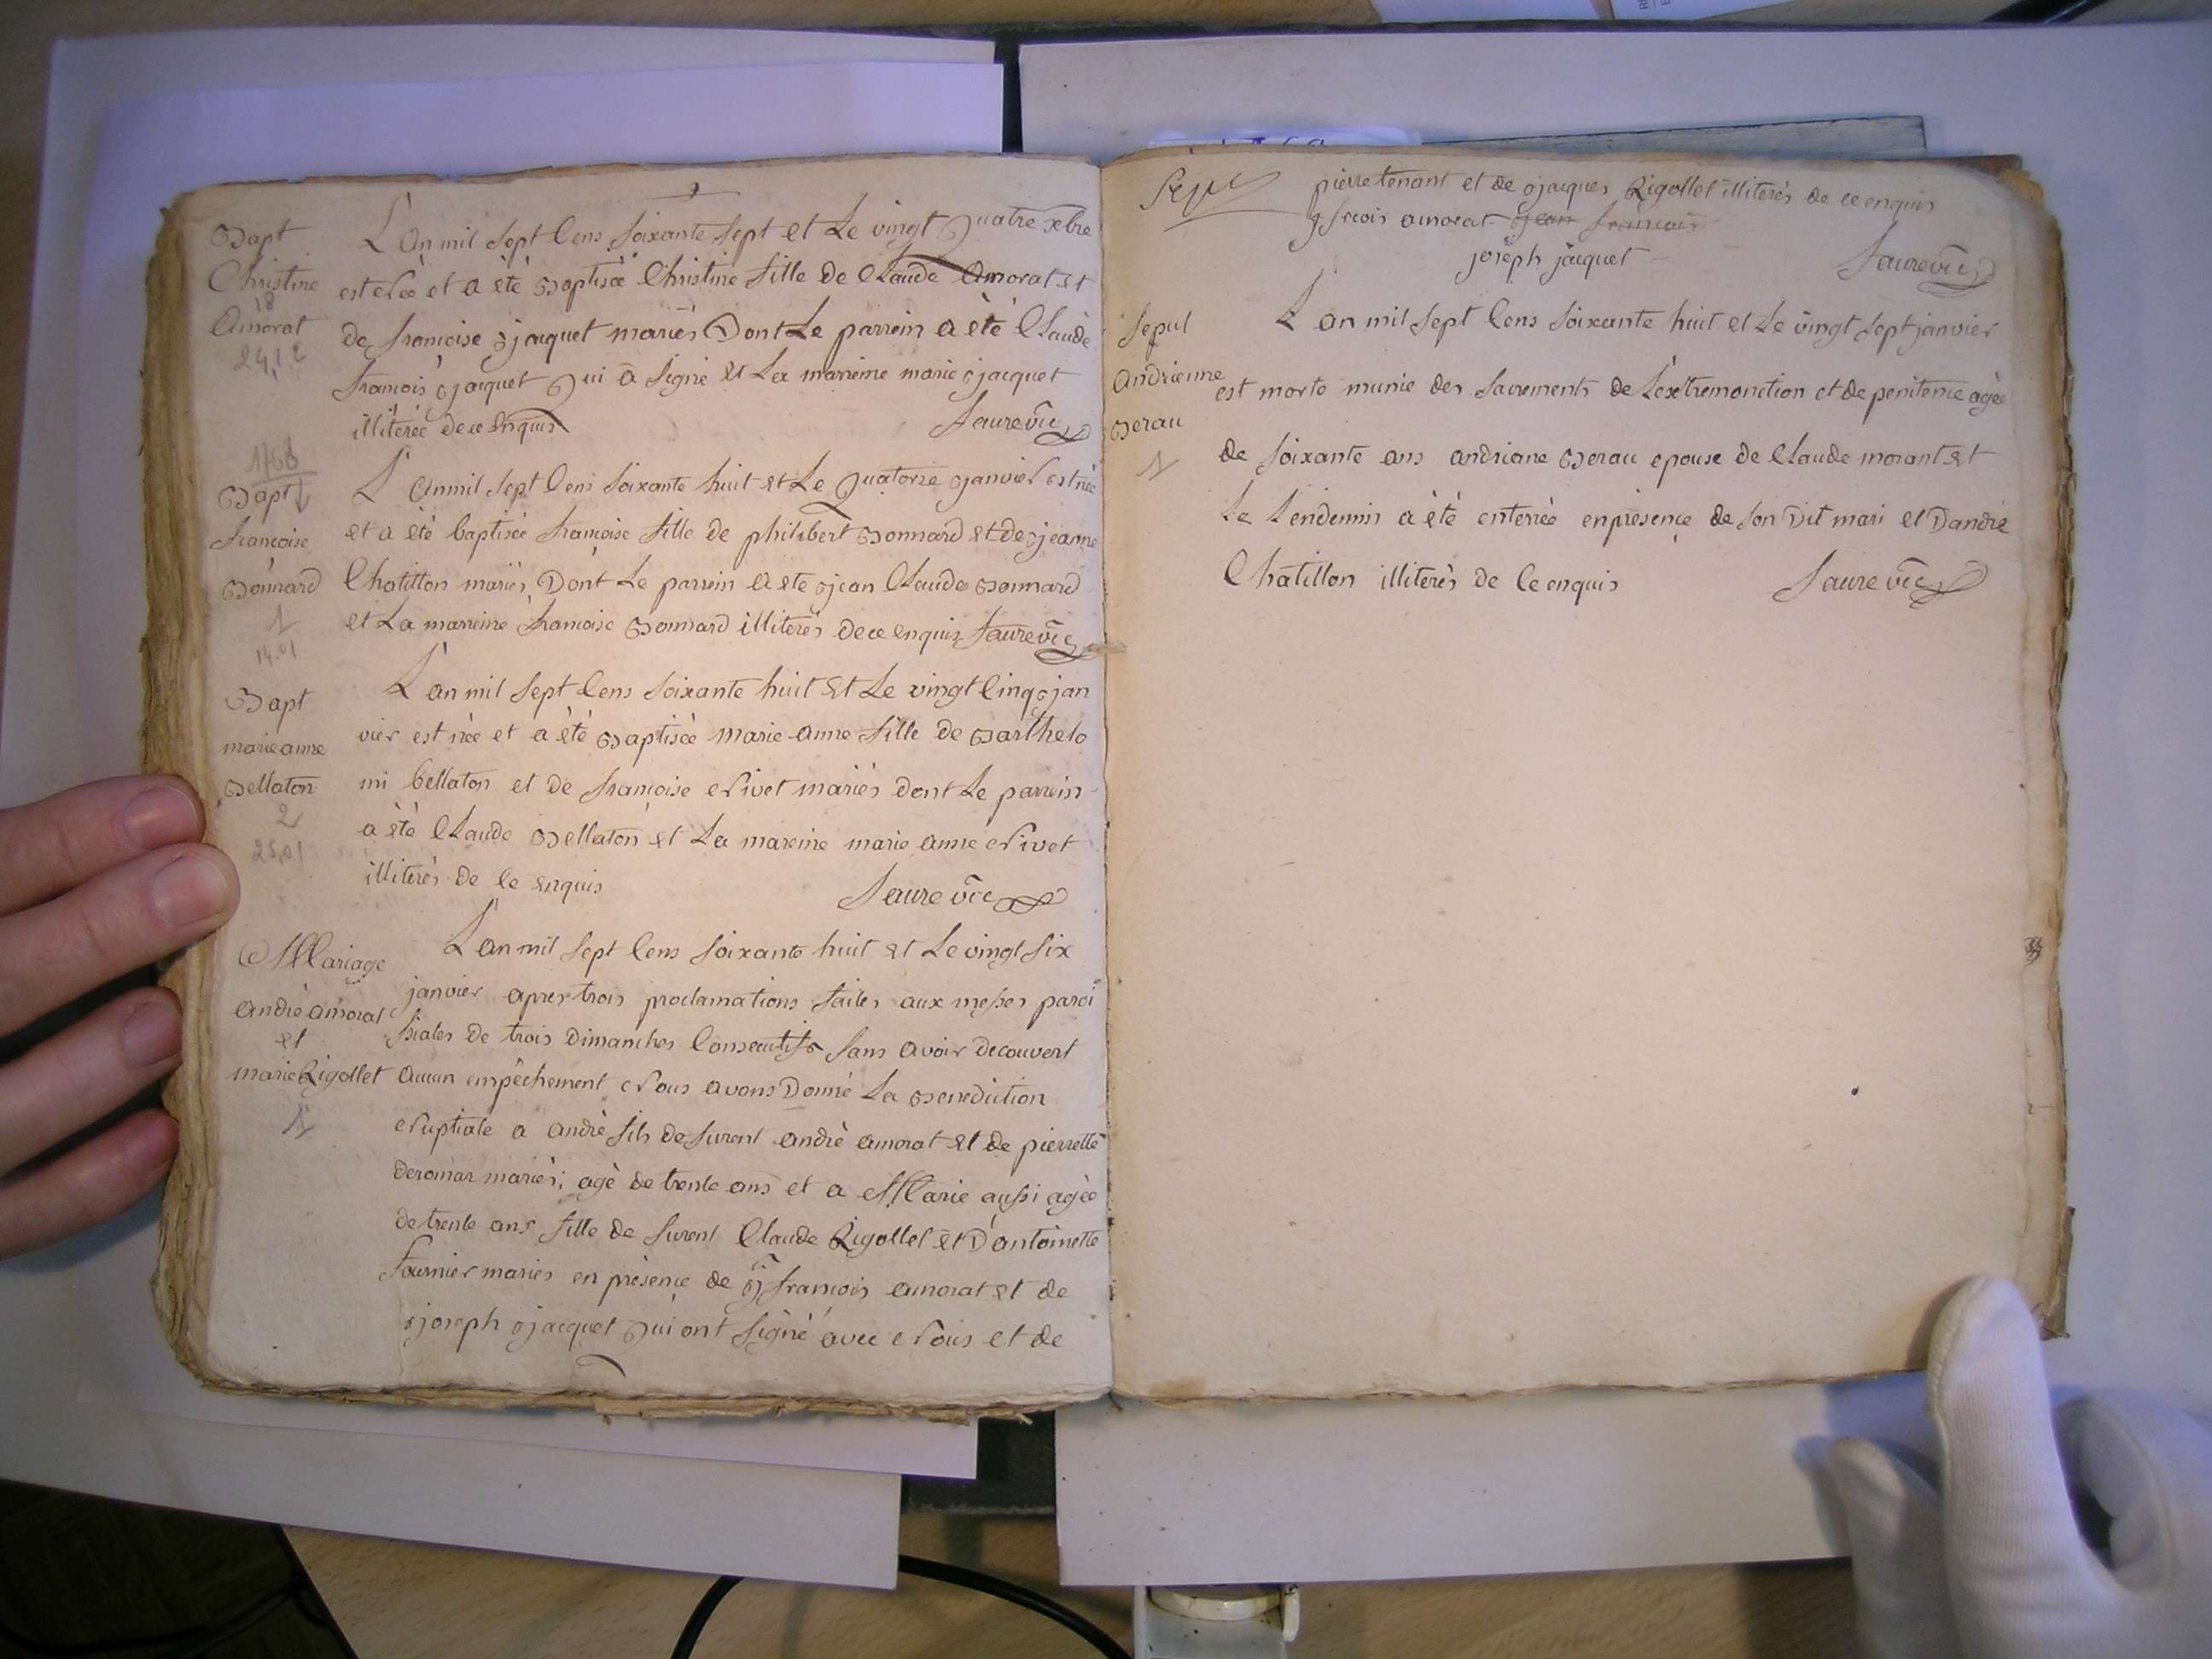 Bapt
Christine
18
Amorat
24,12
L'an mil sept Cens soixante sept et Le vingt Quatre xbre
est Née et a été Baptisée Christine fille de Claude Amorat et
de francoise jacquet mariés Dont Le parrein a été Claude
francois jacquet Qui a signé et La marreine marie jacquet
illiterée de ce Enquis faure vic
1768
Bapt
francoise
Bonnard
1
14.01
L'An mil sept Cens soixante huit et Le Quatorze janvier est née
et a été baptisée francoise fille de philibert Bonnard et de jeanne
Chatillon mariés Dont Le parrein a ete jean Claude Bonnard
et La marreine francoise Bonnard illiterés de ce enquis faure vic
Bapt
marie anne
Bellaton
2
25,01
L'an mil sept Cens soixante huit et Le vingt Cinq jan
vier est née et a été Baptisée marie anne fille de Barthelo
mi bellaton et de francoise Nivet mariés dont Le parrein
a été Claude Bellaton et La mareine marie anne Nivet
illiterés de Ce enquis faure vic
Mariage
André amorat
et
marie Rigollet
1
L'an mil sept Cens soixante huit et Le vingt six
janvier apres trois proclamations faites aux messes paroi
ssiales de trois Dimanches Consecutifs sans avoir decouvert
aucun empêchement Nous avons Donné La Benediction
Nuptiale a andré fils de furent andrè amorat et de pierrette
deromar mariés; agé de trente ans et a Marie aussi agée
de trente ans fille de furent Claude Rigollet et D'antoinette
fournier mariés en présence de j francois amorat et de
joseph jacquet Qui ont signé avec Nous et de
Sept
pierre tenant et de jacques Rigollet illiterés de ce enquis
j frcois amorat jean francois
joseph jacquet faure vic
Sepul
andrienne
Berau
1
L'an mil sept Cens soixante huit et Le vingt sept janvier
est morte munie des sacrements de L'extremonction et de penitence agée
de soixante ans andriane Berau epouse de Claude morant et
Le Lendemin a été enterrée en présence de son Dit mari et D'andre
Chatillon illiterés de Ce enquis faure vic